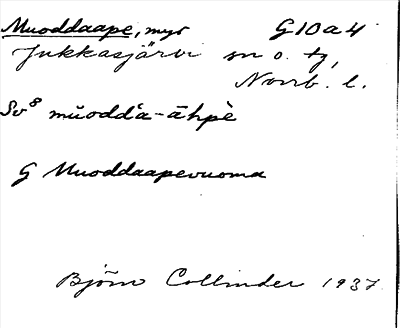 Muoddaape, myr G10a4
Jukkasjärvi sn o. tg,
Norrb. l.
Sv⁸ muodd'a-āhpè
G Muoddaapevuoma
Björn Collinder 1937